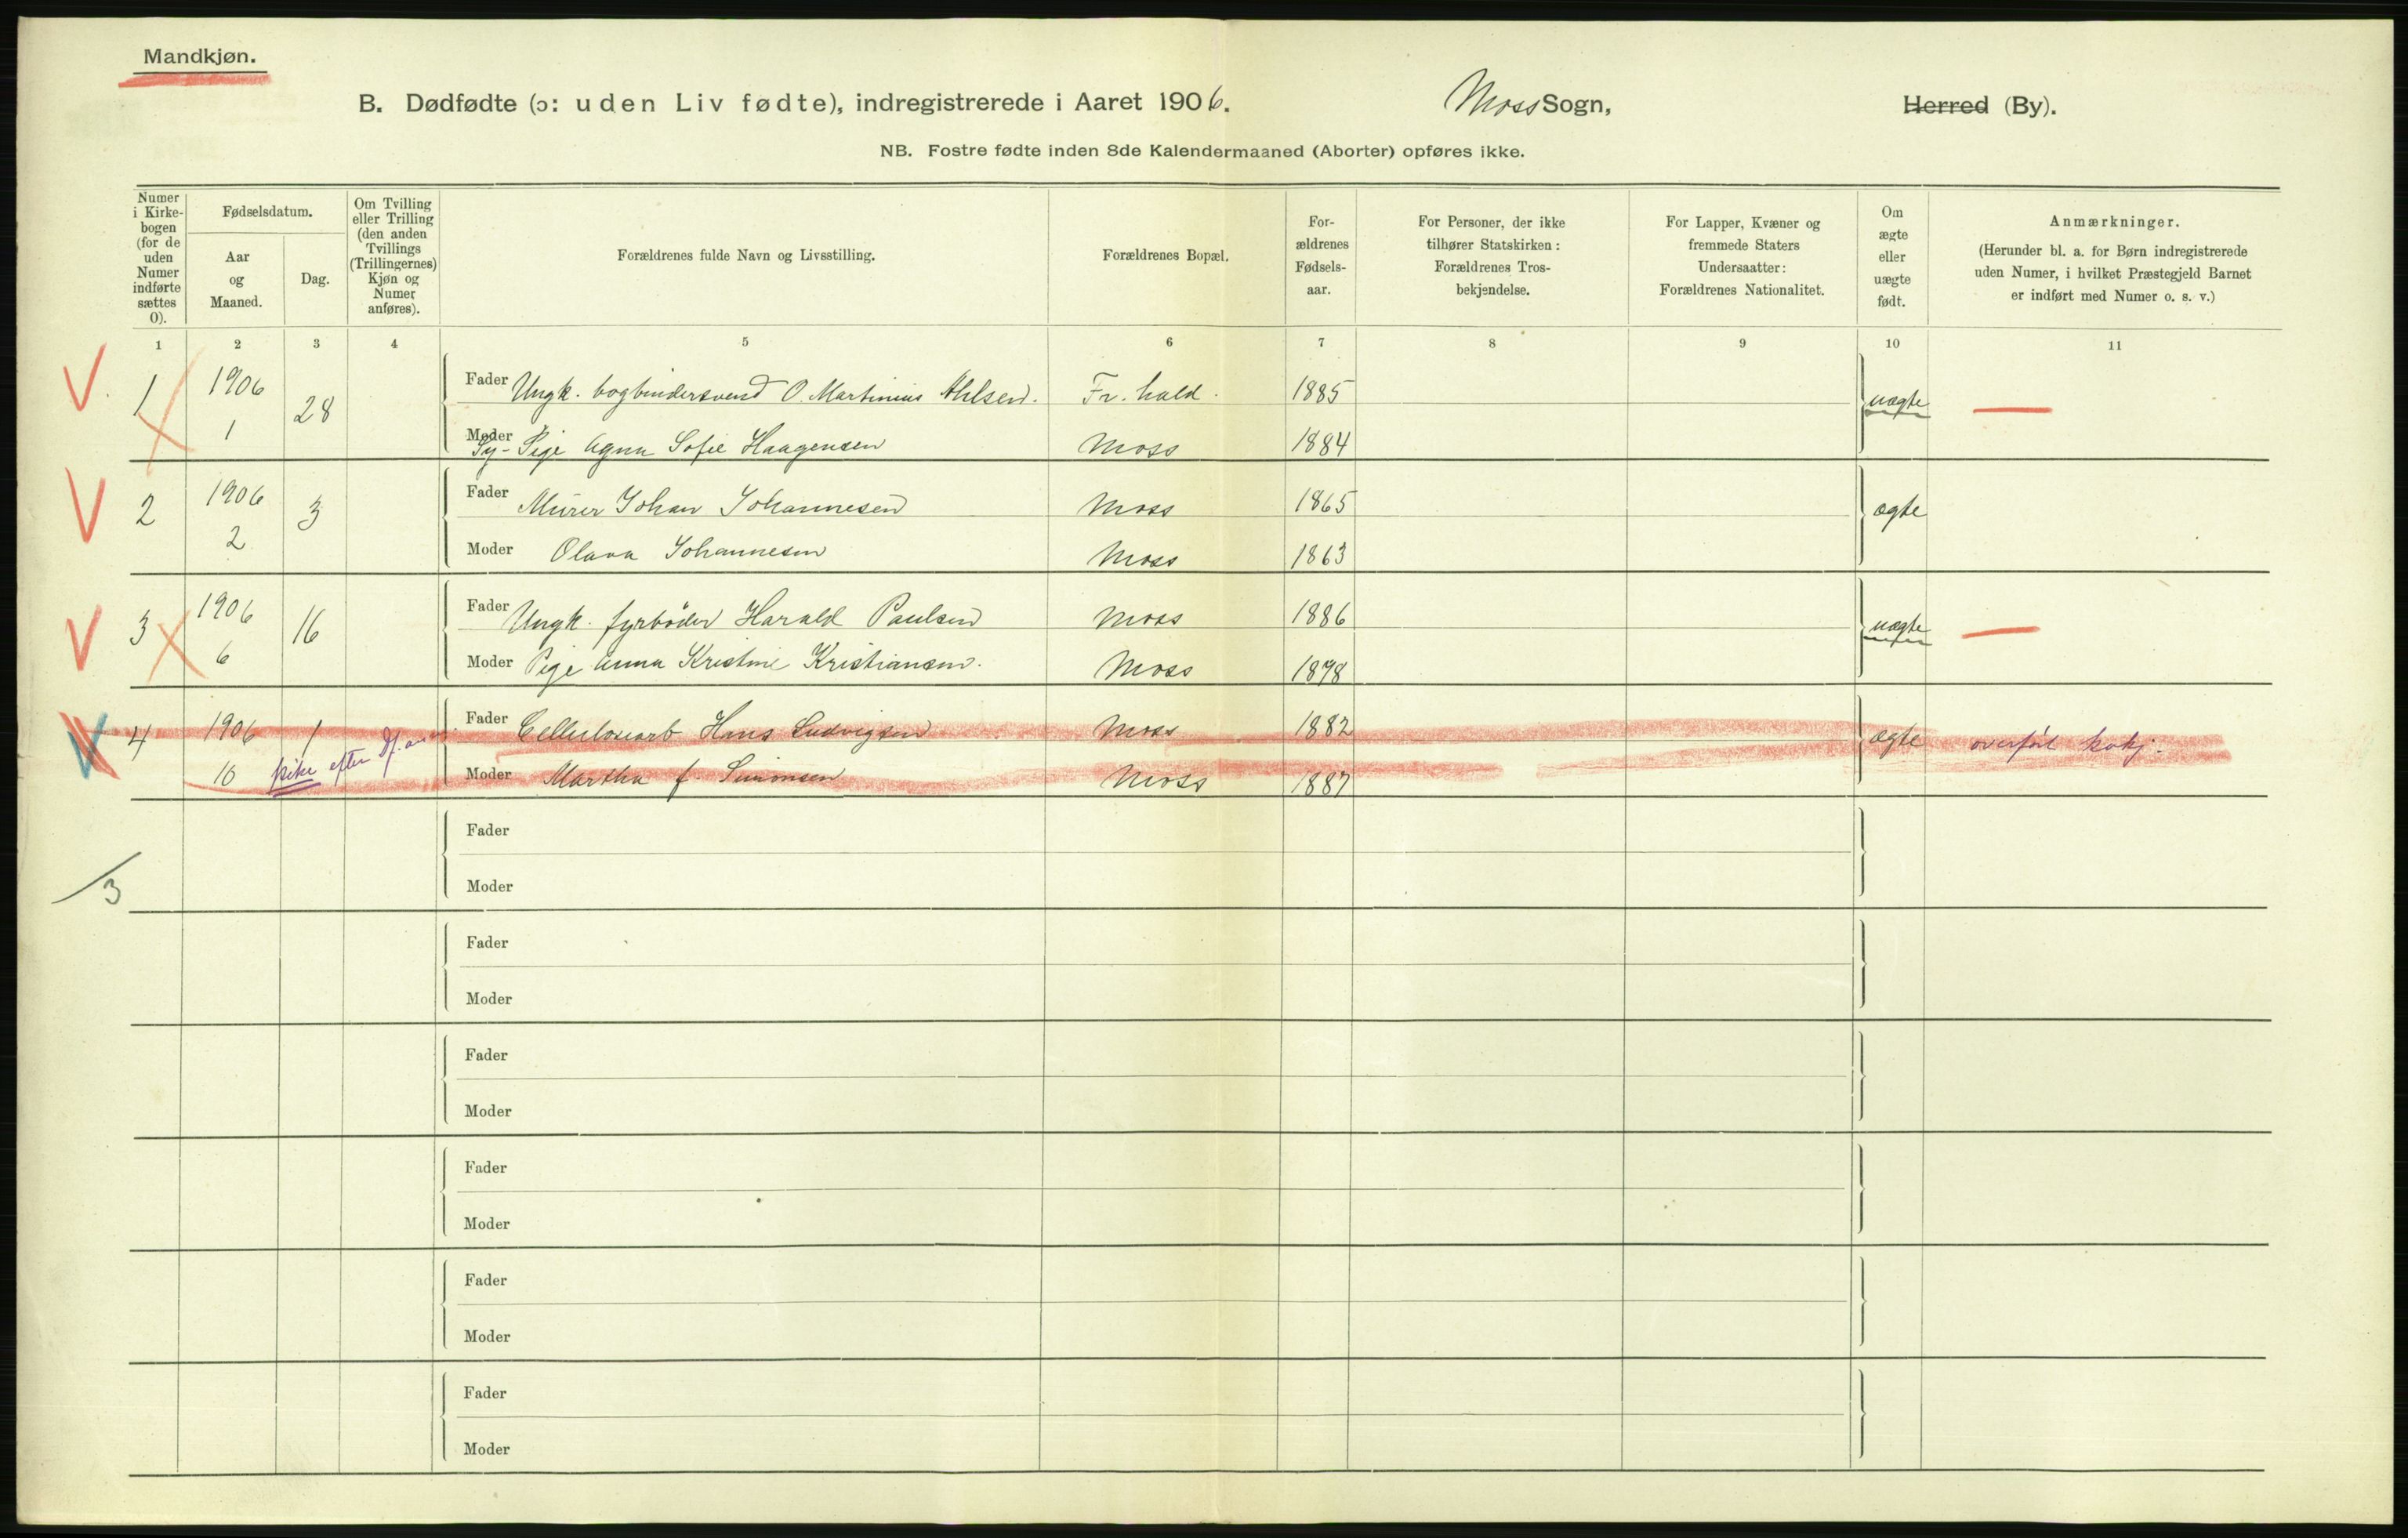 Mandkjøn.
B. Dødfødte (ɔ: uden Liv fødte), indregistrerede i Aaret 1906. Moss Sogn, Herred (By).
NB. Fostre fødte inden 8de Kalendermaaned (Aborter) opføres ikke.
Numer i Kirke-bogen (for de uden Numer indførte sættes 0).
Fødselsdatum.
Aar og Maaned.
Dag.
Om Tvilling eller Trilling (den anden Tvillings (Trillingernes) Kjøn og Numer anføres).
Forældrenes fulde Navn og Livsstilling.
Forældrenes Bopæl.
For-ældrenes Fødsels-aar.
For Personer, der ikke tilhører Statskirken: Forældrenes Tros-bekjendelse.
For Lapper, Kvæner og fremmede Staters Undersaatter: Forældrenes Nationalitet.
Om ægte eller uægte født.
Anmærkninger.
(Herunder bl. a. for Børn indregistrerede uden Numer, i hvilket Præstegjeld Barnet er indført med Numer o. s. v.)
1 2 3 4 5 6 7 8 9 10 11
1 1906 1 28 Fader Ungk. bogbindersvend O. Martinius Ahlsen. Fr. hald. 1885 uægte
Moder Sy-Pige Agna Sofie Haagensen Moss 1884
2 1906 2 3 Fader Murer Johan Johannesen Moss 1865 ægte
Moder Olava Johannesen Moss 1863
3 1906 6 16 Fader Ungk. fyrbøder Harald Paulsen Moss 1886 uægte
Moder Pige Anna Kristine Kristiansen. Moss 1878
4 1906 10 1 Fader Cellulosearb Hans Ludvigsen Moss 1882 ægte overført
pike efter Moder Martha f. Simonsen Moss 1887
Fader
Moder
3
Fader
Moder
Fader
Moder
Fader
Moder
Fader
Moder
Fader
Moder